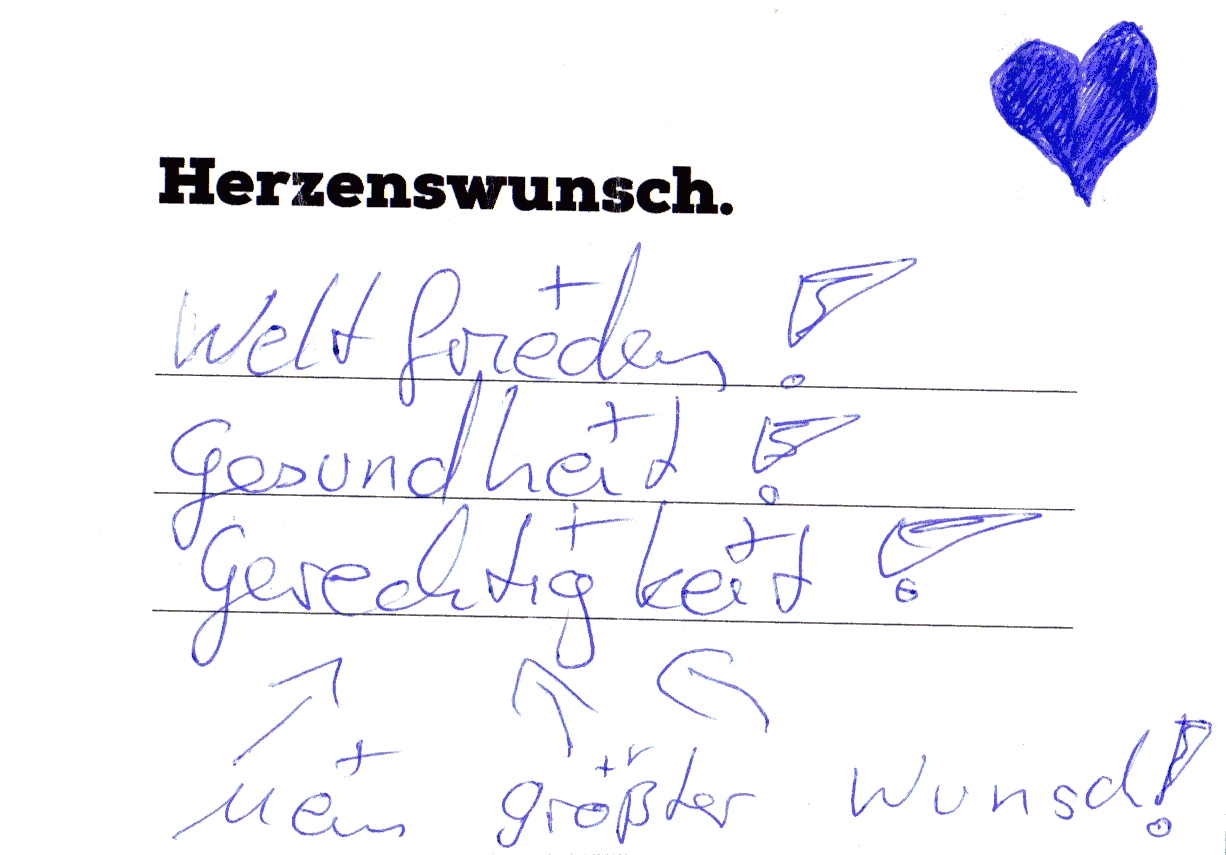 Herzenswunsch.
Weltfrieden!
Gesundheit!
Gerechtigkeit!
Mein größter Wunsch!